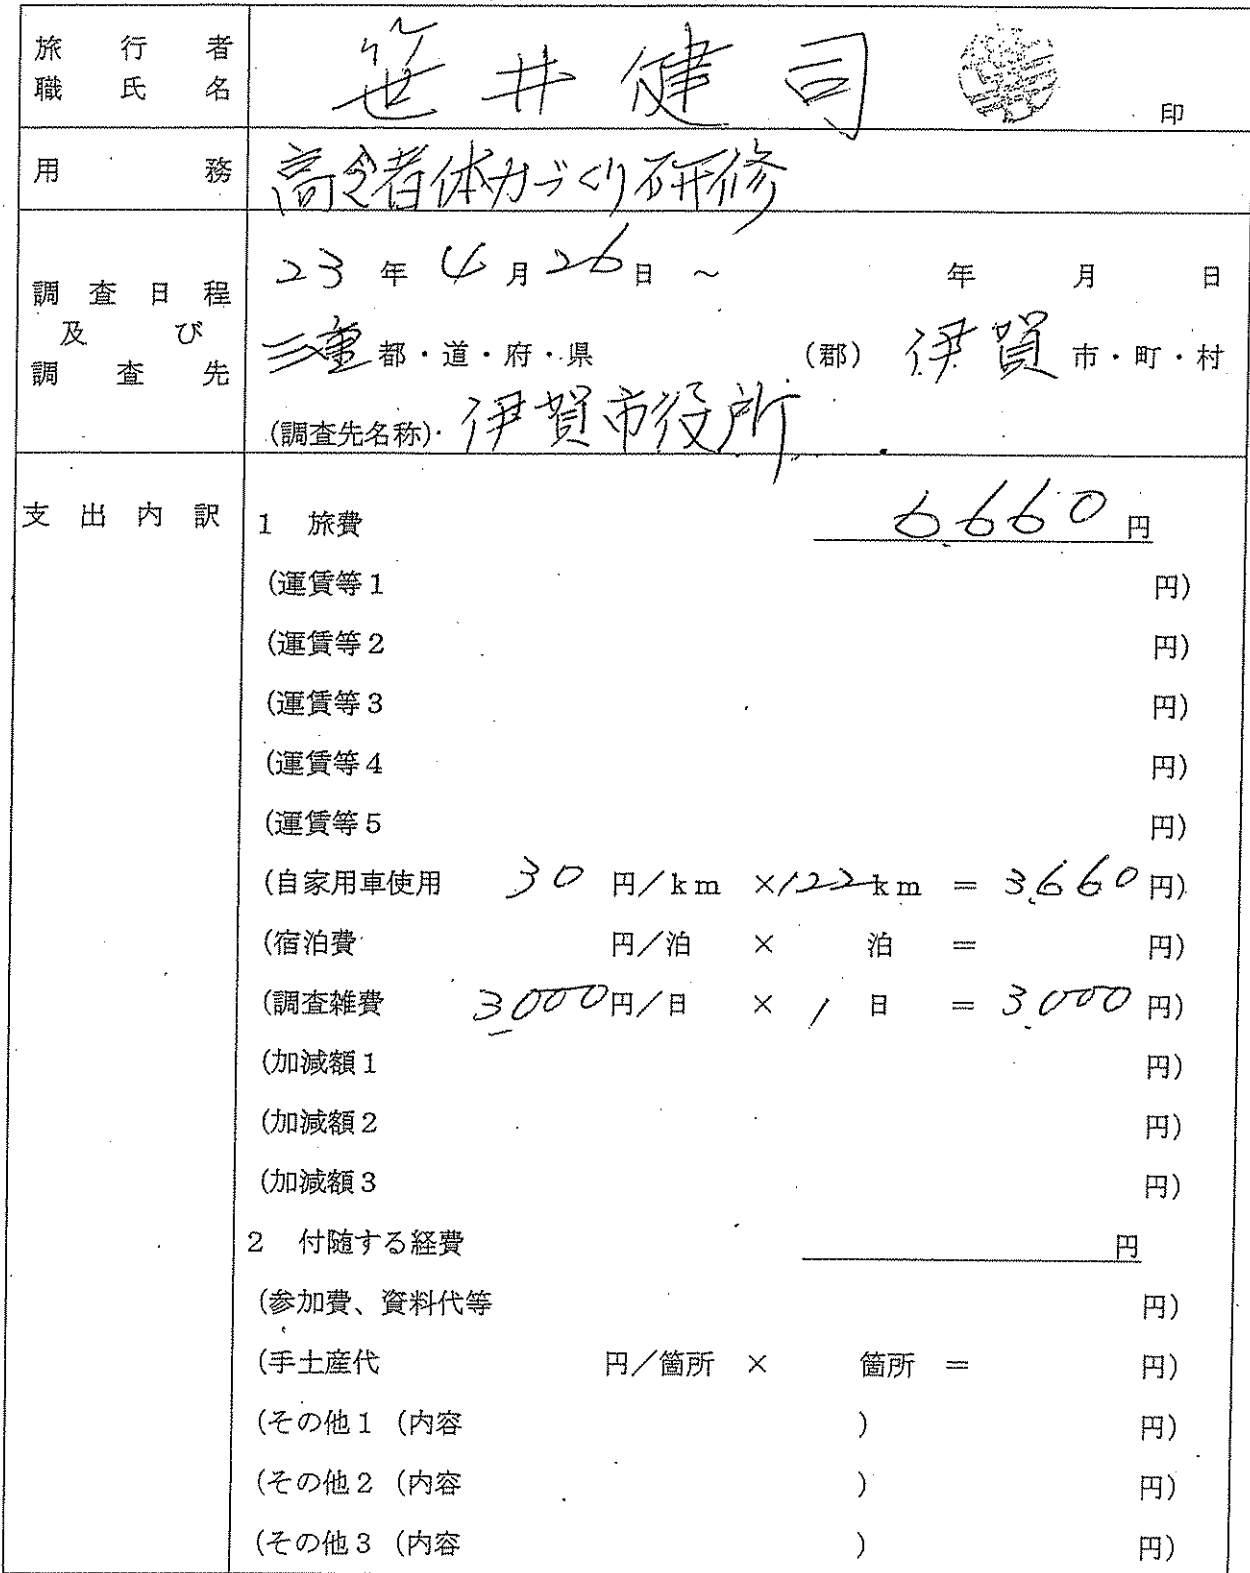 旅行者
職氏名
笹井健司
印
用務
高令者体力づくり研修
調査日程
及び
調査先
23年4月26日 ～ 年 月 日
三重 都・道・府・県 (郡) 伊賀 市・町・村
(調査先名称) 伊賀市役所
支出内訳
1 旅費 6,660円
(運賃等1 円)
(運賃等2 円)
(運賃等3 円)
(運賃等4 円)
(運賃等5 円)
(自家用車使用 30円/km ×122km = 3,660円)
(宿泊費 円/泊 × 泊 = 円)
(調査雑費 3,000円/日 × 1日 = 3,000円)
(加減額1 円)
(加減額2 円)
(加減額3 円)
2 付随する経費 円
(参加費、資料代等 円)
(手土産代 円/箇所 × 箇所 = 円)
(その他1 (内容 ) 円)
(その他2 (内容 ) 円)
(その他3 (内容 ) 円)